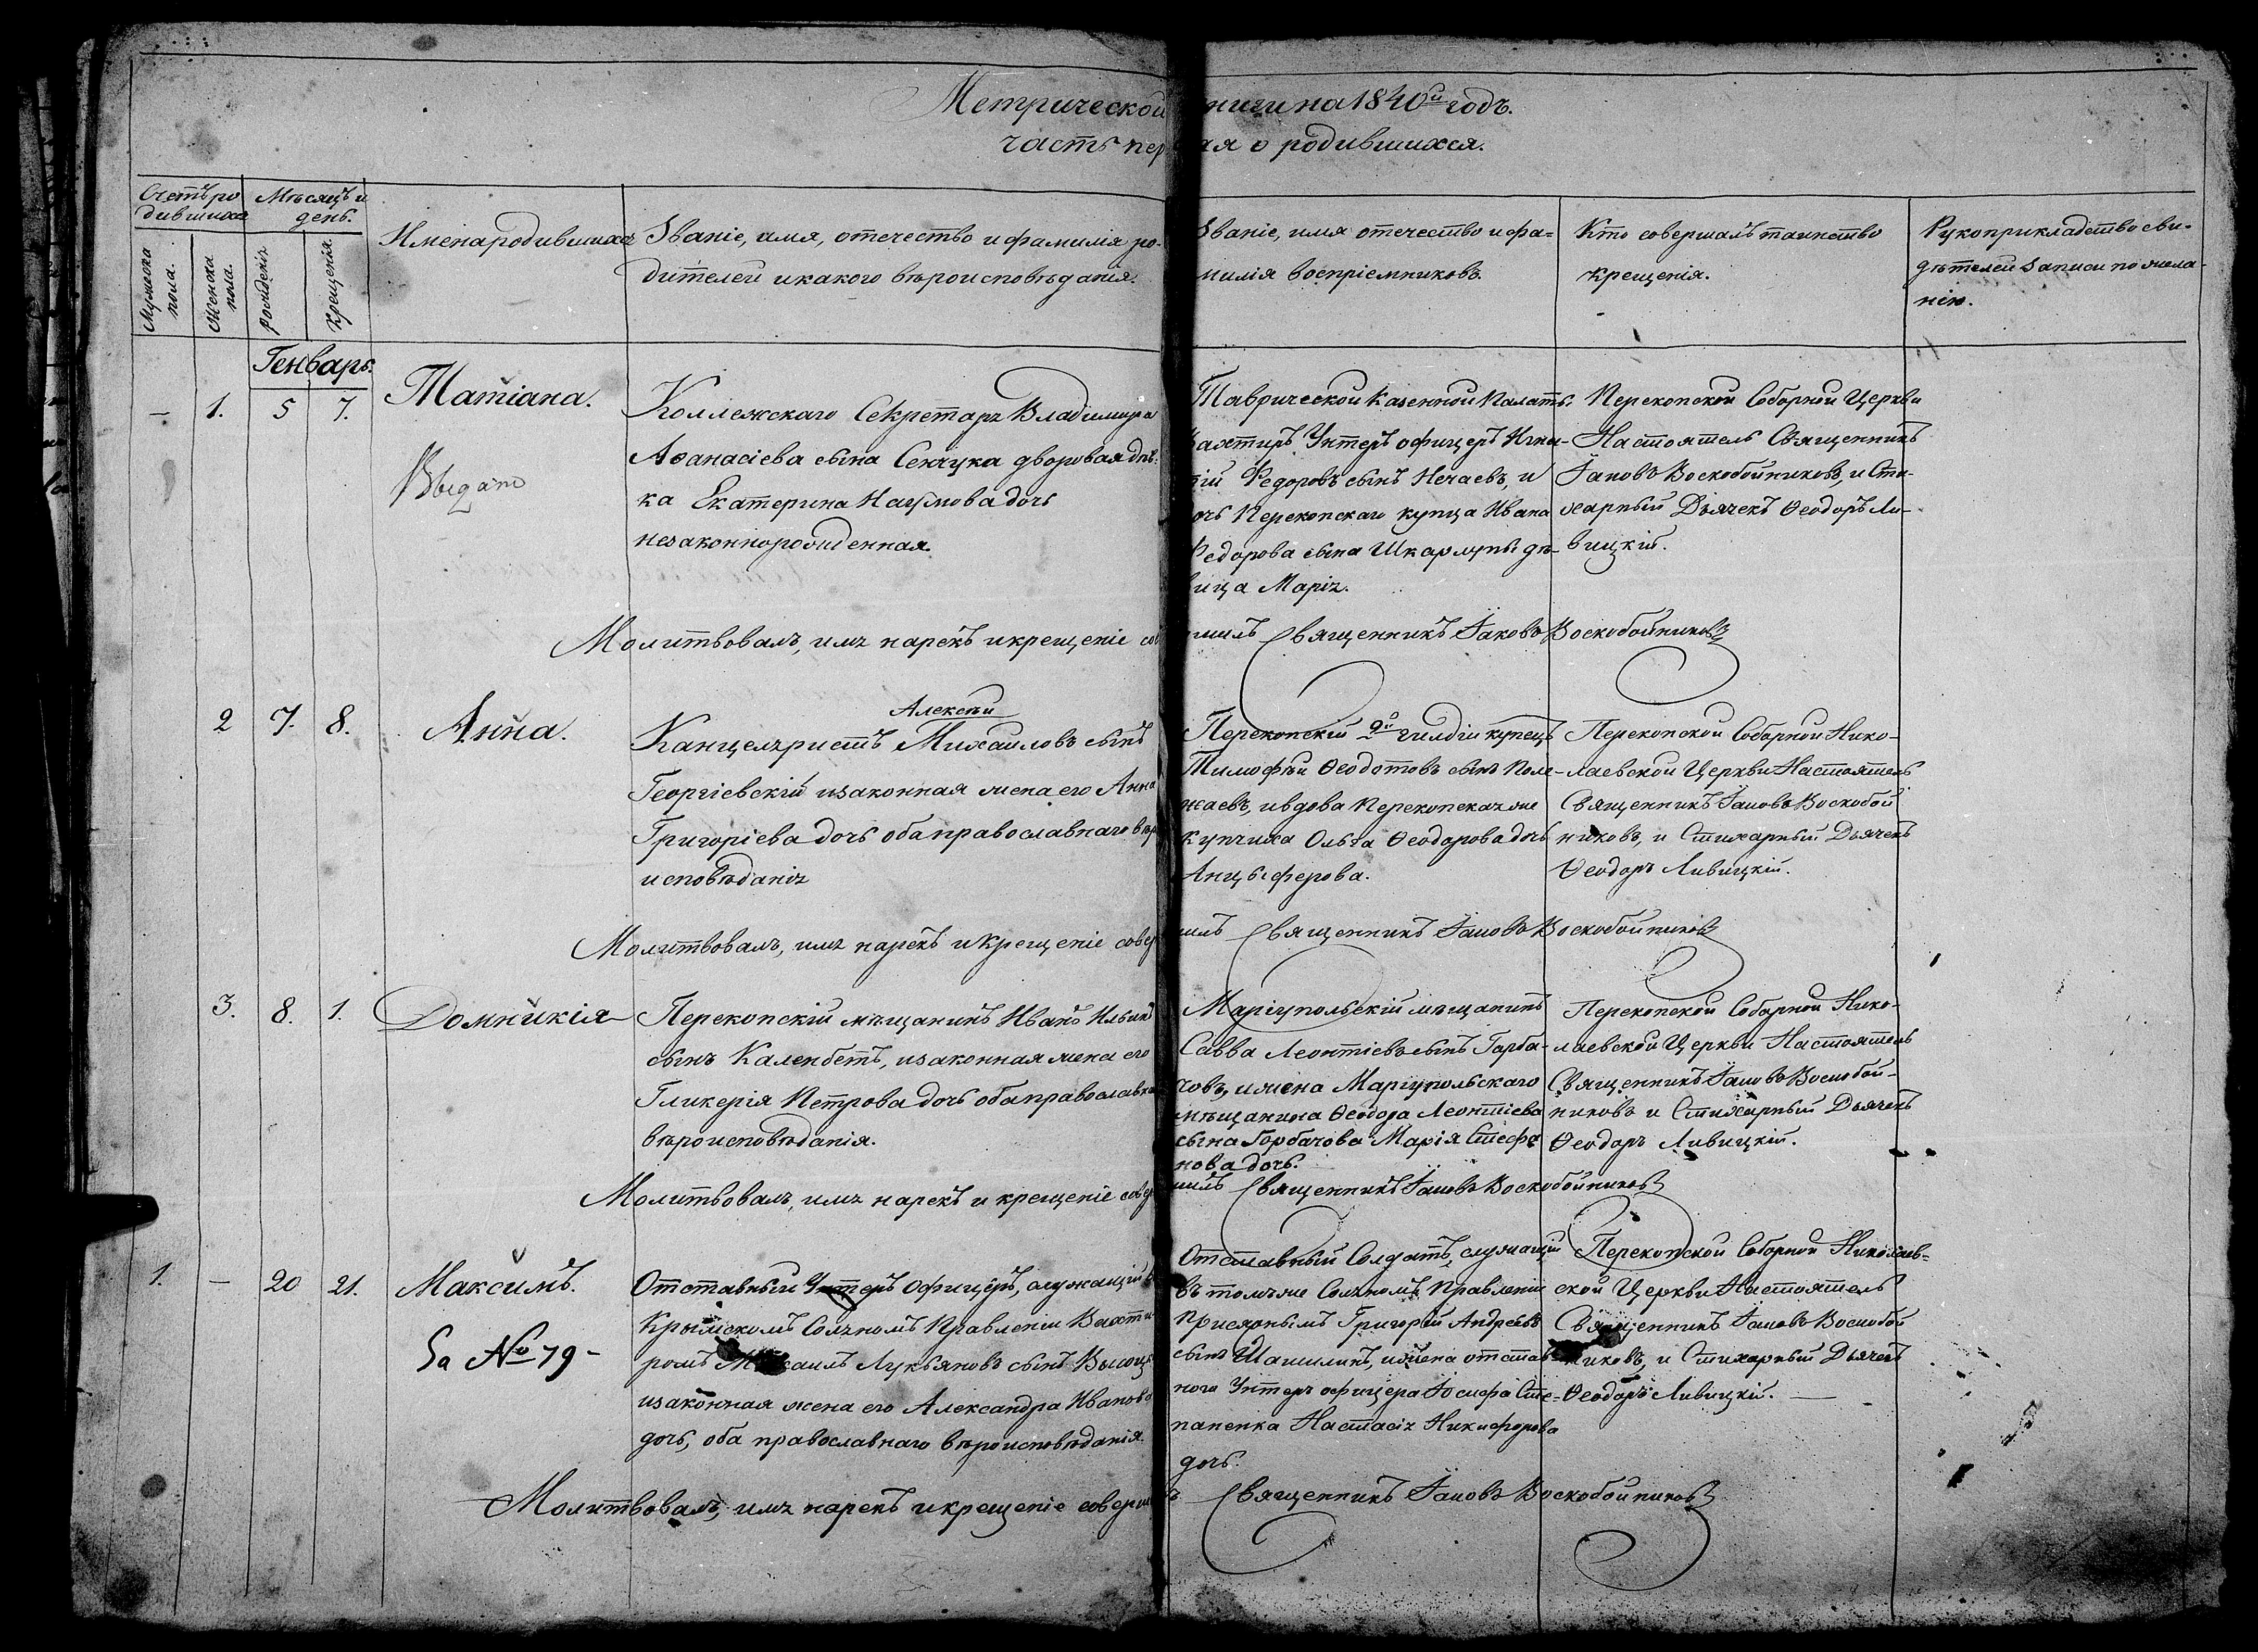 Метрической книги на 1840й годъ.
часть первая о родившихся.
Счетъ ро
дившихся
Мужеска
пола.
Женска
пола.
Мѣсяцъ и
день.
Рожденія.
Крещенія.
Имена родившихся
Званіе, имя, отечество и фамилія ро-
дителей и какого вѣроисповѣданія.
Званіе, имя отечество и фа=
милія воспріемниковъ.
Кто совершалъ таинство
крещенія.
Рукоприкладство сви-
дѣтелей записи по жела-
нію.
Генварь.
— 1. 5 7.
Татіана.
Выдано
Коллежскаго Секретаря Владимира
Аѳанасіева сына Сенчука дворовая дѣв-
ка Екатерина Наумова дочь
незаконнорожденная.
Таврической Казенной Палаты
Вахтиръ Унтеръ офицеръ Игна-
тій Федоровъ сынъ Нечаевъ, и
дочь Перекопскаго купца Ивана
Федорова сына Шкарлупы дѣ-
вица Марія.
Перекопской Соборной Церкви
Настоятель Священникъ
Іаковъ Воскобойниковъ, и Сти-
харный Дьячекъ Ѳеодоръ Ли-
вицкій.
Молитвовалъ, имя нарекъ и крещеніе совершилъ Священникъ Іаковъ Воскобойниковъ
2 7. 8.
Анна.
Алексѣй
Канцеляристъ Михаиловъ сынъ
Георгіевскій и законная жена его Анна
Григоріева дочь оба православнаго вѣро
исповѣданія
Перекопскій 2й гилдіи купецъ
Тимофѣй Ѳеодотовъ сынъ Поле-
жаевъ, и вдова Перекопская же
купчиха Ольга Ѳеодорова дочь
Анцыферова.
Перекопской Соборной Нико-
лаевской Церкви Настоятель
Священникъ Іаковъ Воскобой
никовъ, и Стихарный Дьячекъ
Ѳеодоръ Ливицкій.
Молитвовалъ, имя нарекъ и крещеніе совершилъ Священникъ Іаковъ Воскобойниковъ
3. 8. 1.
Домникія
Перекопскій мѣщанинъ Иванъ Ильинъ
сынъ Каленбетъ, и законная жена его
Гликерія Петрова дочь оба православнаго
вѣроисповѣданія.
Маріупольскій мѣщанинъ
Савва Леонтіевъ сынъ Горба-
човъ, и жена Маріупольскаго
мѣщанина Ѳеодора Леонтіева
сына Горбачова Марія Стефа
нова дочь.
Перекопской Соборной Нико-
лаевской Церкви Настоятель
Священникъ Іаковъ Воскобой-
никовъ и Стихарный Дьячекъ
Ѳеодоръ Ливицкій.
Молитвовалъ, имя нарекъ и крещеніе совершилъ Священникъ Іаковъ Воскобойниковъ
1. — 20 21.
Максимъ.
За № 79-
Отставный Унтеръ Офицеръ, служащій въ
Крымскомъ Соляномъ Правленіи Вахти
ромъ Михаилъ Лукьяновъ сынъ
и законная жена его Александра Иванова
дочь, оба православнаго вѣроисповѣданія.
Отставный Солдатъ, служащій
въ томъ же Соляномъ Правленіи
присяжнымъ Григорій Андреевъ
сынъ Шашилинъ, и жена отстав-
ного Унтеръ офицера Іосифа Сте-
паненка Настасія Никифорова
дочь.
Перекопской Соборной Николаев-
ской Церкви Настоятель
Священникъ Іаковъ Воскобой
никовъ, и Стихарный Дьячекъ
Ѳеодоръ Ливицкій. —
Молитвовалъ, имя нарекъ и крещеніе совершилъ Священникъ Іаковъ Воскобойниковъ